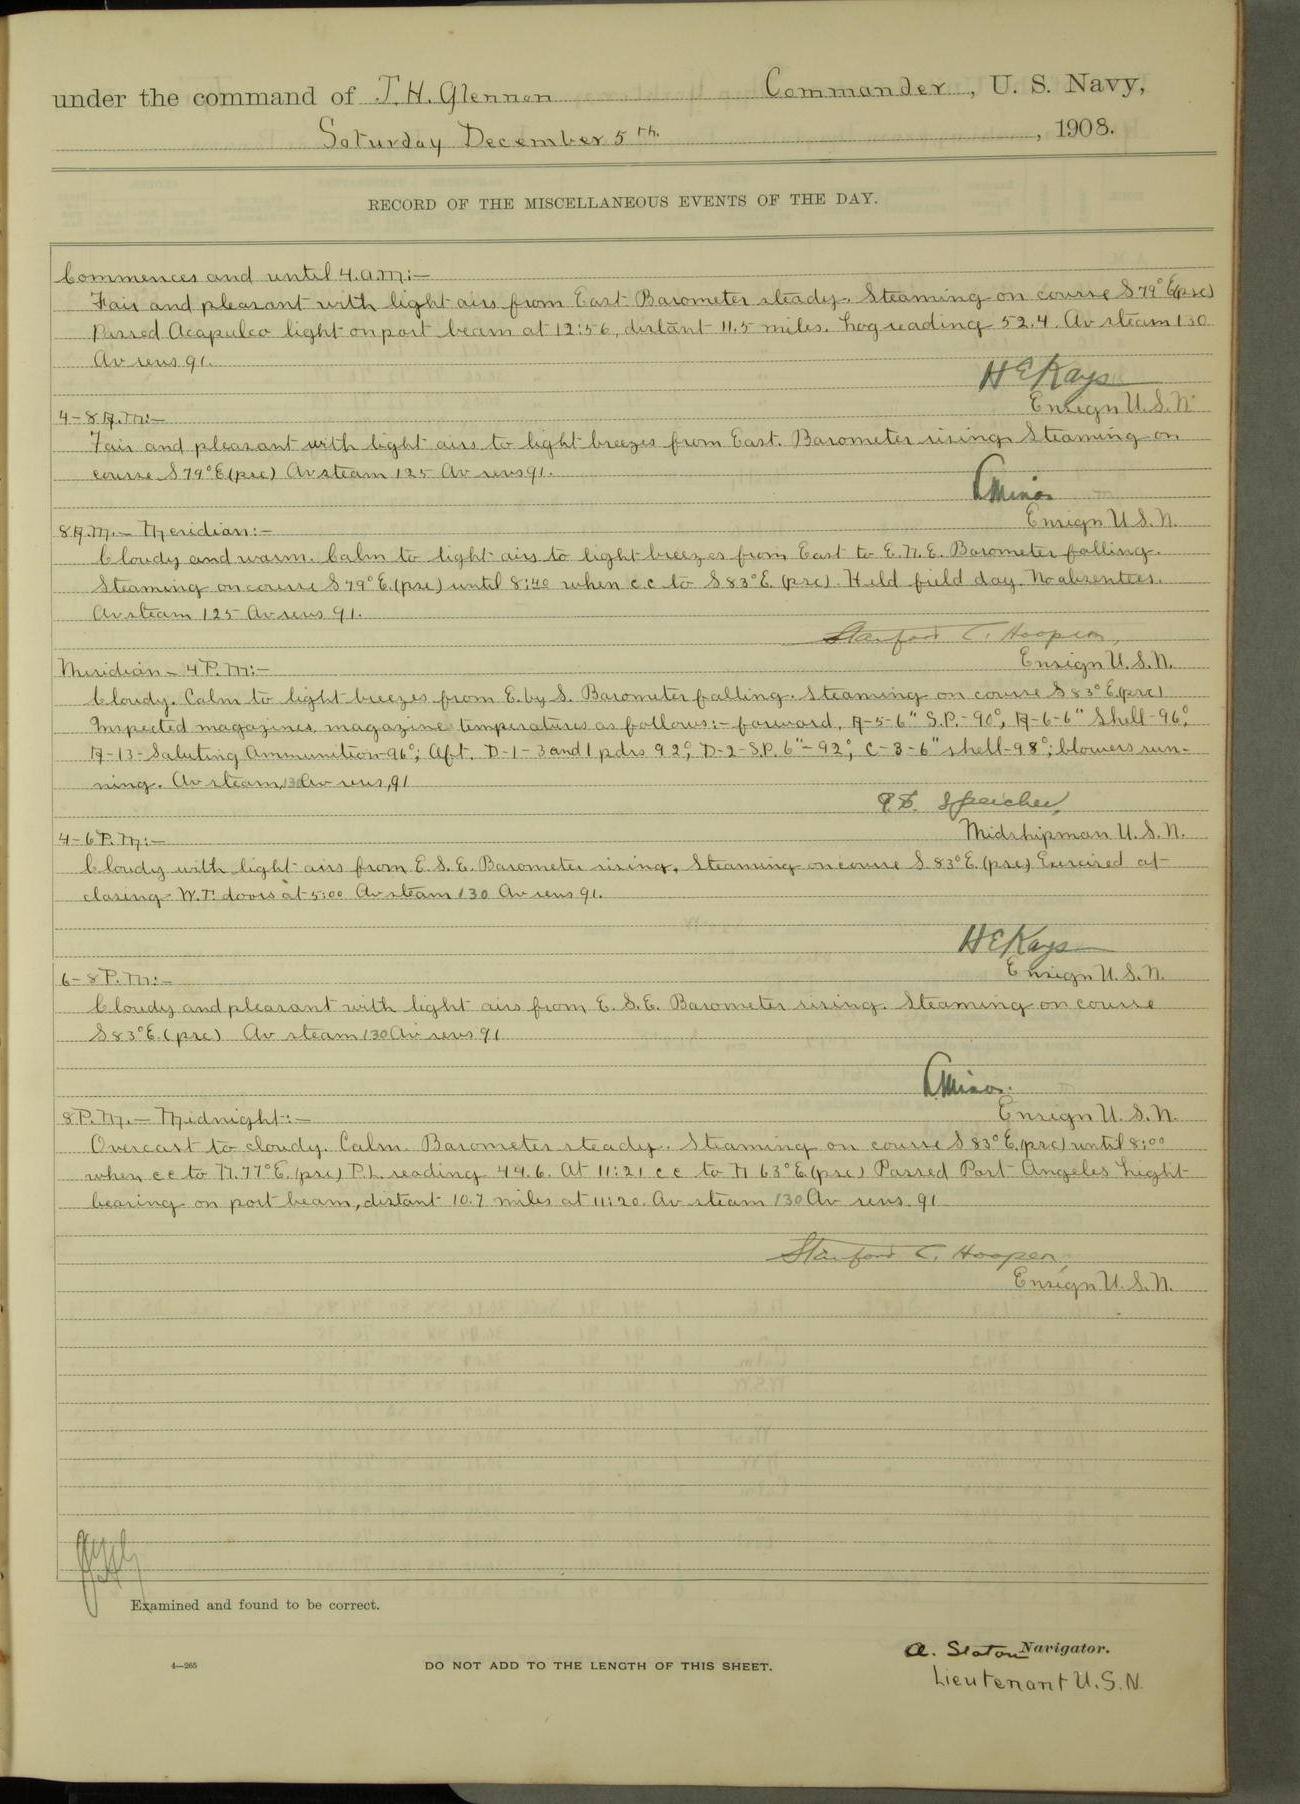 under the command of J. H. Glennon Commander, U. S. Navy,
Saturday December 5th., 1908.
RECORD OF THE MISCELLANEOUS EVENTS OF THE DAY.
Commences and until 4.a.m:—
Fair and pleasant with light airs from East Barometer steady. Steaming on course S 79° E(psc)
Passed Acapulco light on port beam at 12:56, distant 11.5 miles. Log reading 52.4. Av steam 130
Av revs 91.
H E Kays
Ensign U.S.N.
4-8 A.M:—
Fair and pleasant with light airs to light breezes from East. Barometer rising. Steaming on
course S 79° E(psc) Av steam 125 Av revs 91.
Minor
Ensign U.S.N.
8 A.M. — Meridian:—
Cloudy and warm. Calm to light airs to light breezes from East to E.N.E. Barometer falling.
Steaming on course S 79° E.(psc) until 8:40 when c.c to S 83° E. (psc). Held field day. No absentees.
Av steam 125 Av revs 91.
Stanford C. Hooper,
Ensign U.S.N.
Meridian – 4 P.M:—
Cloudy. Calm to light breezes from E. by S. Barometer falling. Steaming on course S 83° E(psc)
Inspected magazines, magazine temperatures as follows:— forward, A-5-6" S.P.-90°, A-6-6" Shell-96°,
A-13-Saluting Ammunition-96°; Aft. D-1-3 and 1 pdrs 92°, D-2-S.P. 6"-92°, C-3-6" shell-98°; blowers run-
ning. Av steam, 130 Av revs, 91
Speicher,
Midshipman U.S.N.
4-6 P.M:—
Cloudy with light airs from E.S.E. Barometer rising. Steaming on course S. 83° E. (psc) Exercised at
closing W.T. doors at 5:00 Av steam 130 Av revs 91.
H E Kays
Ensign U.S.N.
6-8 P.M:—
Cloudy and pleasant with light airs from E.S.E. Barometer rising. Steaming on course
S 83° E. (psc) Av steam 130 Av revs 91
Minor.
Ensign U.S.N.
8 P.M. — Midnight:—
Overcast to cloudy. Calm. Barometer steady. Steaming on course S 83° E.(psc) until 8:00
when cc to N. 77° E. (psc) P.L. reading 49.6. At 11:21 c c to N 63° E.(psc) Passed Port Angeles Light
bearing on port beam, distant 10.7 miles at 11:20. Av steam 130 Av revs. 91
Stanford C. Hooper,
Ensign U.S.N.
Examined and found to be correct.
A. Staton Navigator.
4—265
DO NOT ADD TO THE LENGTH OF THIS SHEET.
Lieutenant U.S.N.